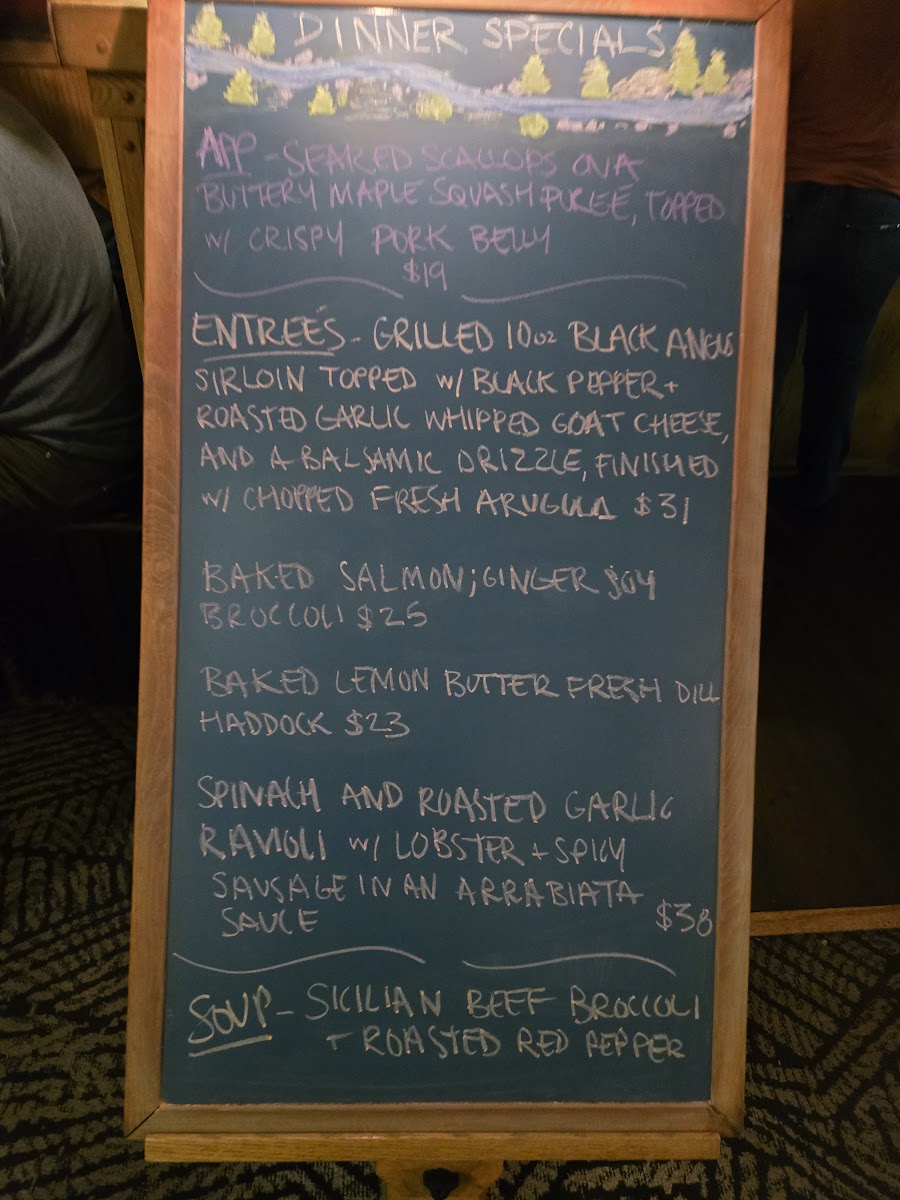 DINNER SPECIALS
APP - SEARED SCALLOPS ON A
BUTTERY MAPLE SQUASH PUREÉ, TOPPED
W/ CRISPY PORK BELLY
$19
ENTREÉS - GRILLED 10oz BLACK ANGUS
SIRLOIN TOPPED W/ BLACK PEPPER +
ROASTED GARLIC WHIPPED GOAT CHEESE,
AND A BALSAMIC DRIZZLE, FINISHED
W/ CHOPPED FRESH ARUGULA $31
BAKED SALMON; GINGER SOY
BROCCOLI $25
BAKED LEMON BUTTER FRESH DILL
HADDOCK $23
SPINACH AND ROASTED GARLIC
RAVIOLI W/ LOBSTER + SPICY
SAUSAGE IN AN ARRABIATA
SAUCE $38
SOUP - SICILIAN BEEF BROCCOLI
+ ROASTED RED PEPPER